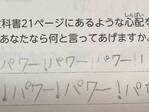 しんぱい
教科書21ページにあるような心配を
あなたなら何と言ってあげますか。
！パワー！パワー！パワー！
！パワー！パワー！パワー！